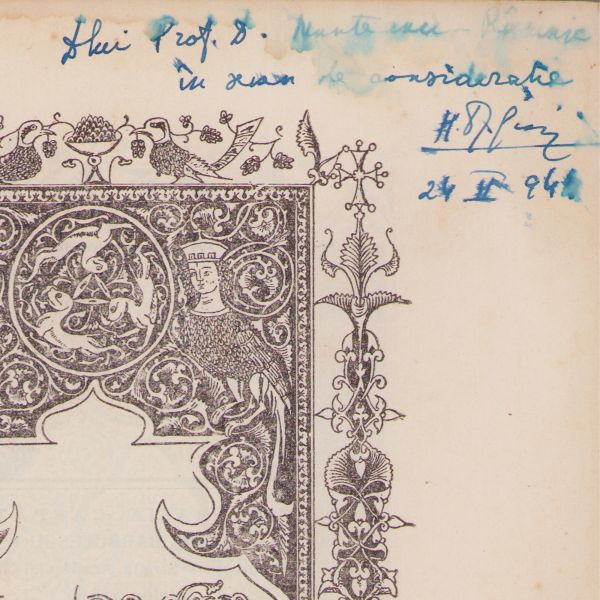 Dlui Prof. D. Munteanu-Râmnic
în semn de considerație
H. Dj. 
24 II 941.